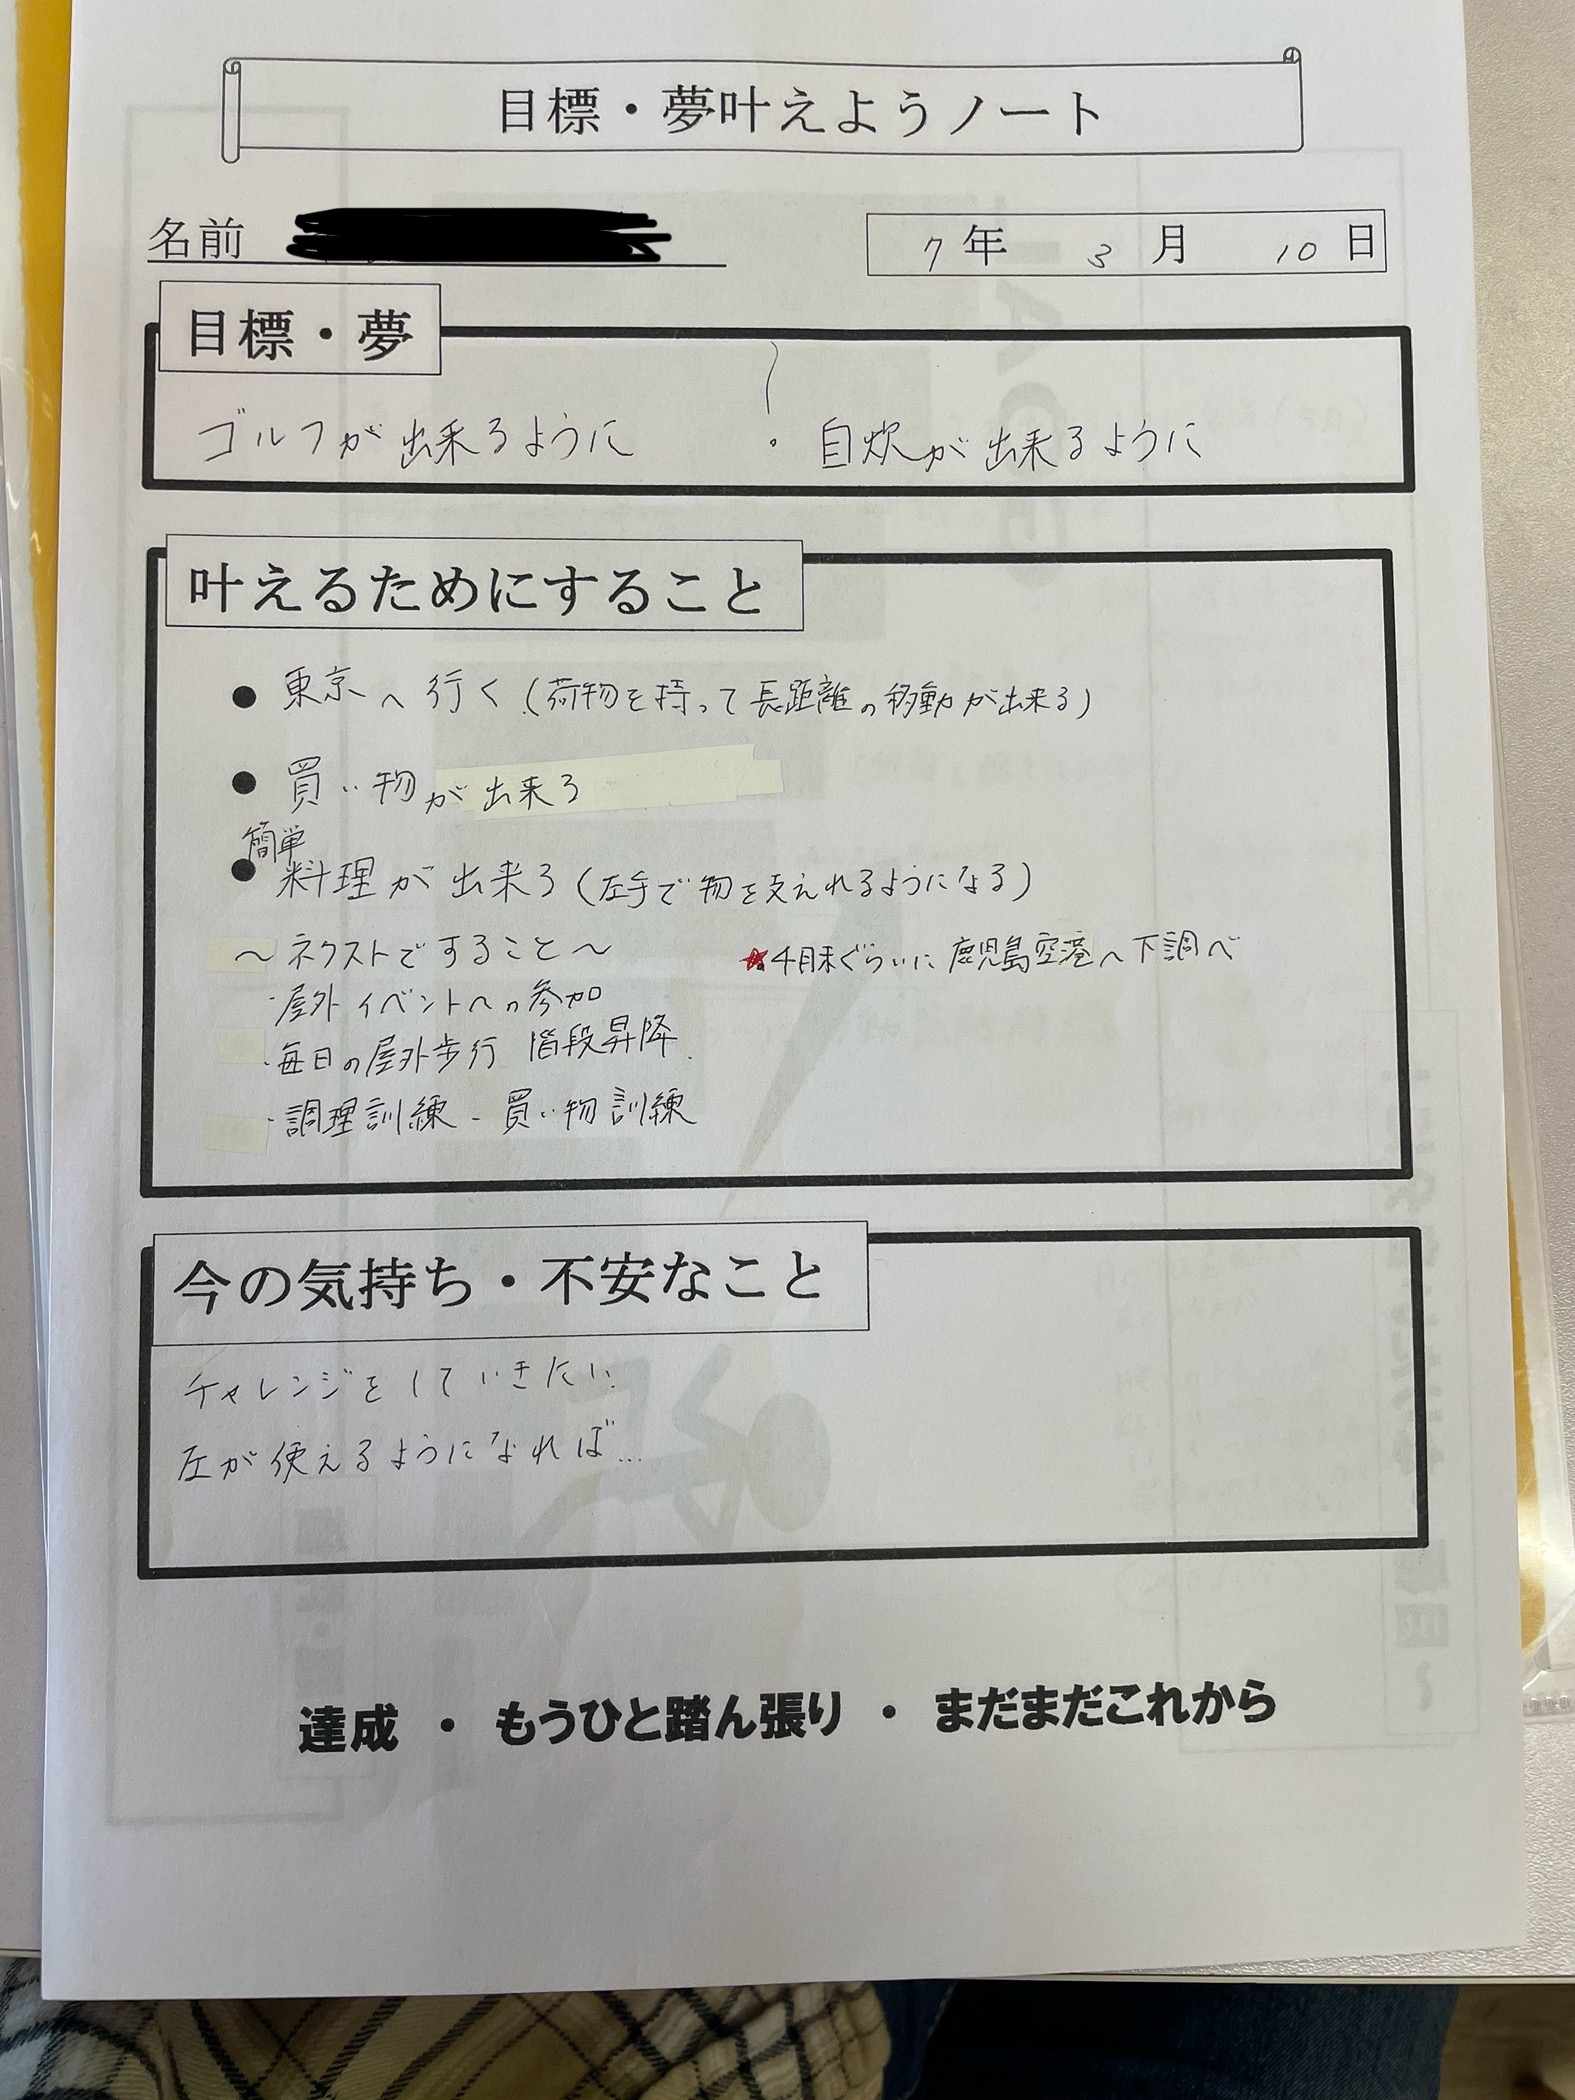 目標・夢叶えようノート
名前
7年 3月 10日
目標・夢
ゴルフが出来るように ・自炊が出来るように
叶えるためにすること
● 東京へ行く(荷物を持って長距離の移動が出来る)
● 買い物が出来る
簡単
● 料理が出来る(左手で物を支えれるようになる)
〜ネクストですること〜 ★4月末ぐらいに鹿児島空港へ下調べ
・屋外イベントへの参加
・毎日の屋外歩行 階段昇降
・調理訓練・買い物訓練
今の気持ち・不安なこと
チャレンジをしていきたい
左が使えるようになれば…
達成 ・ もうひと踏ん張り ・ まだまだこれから